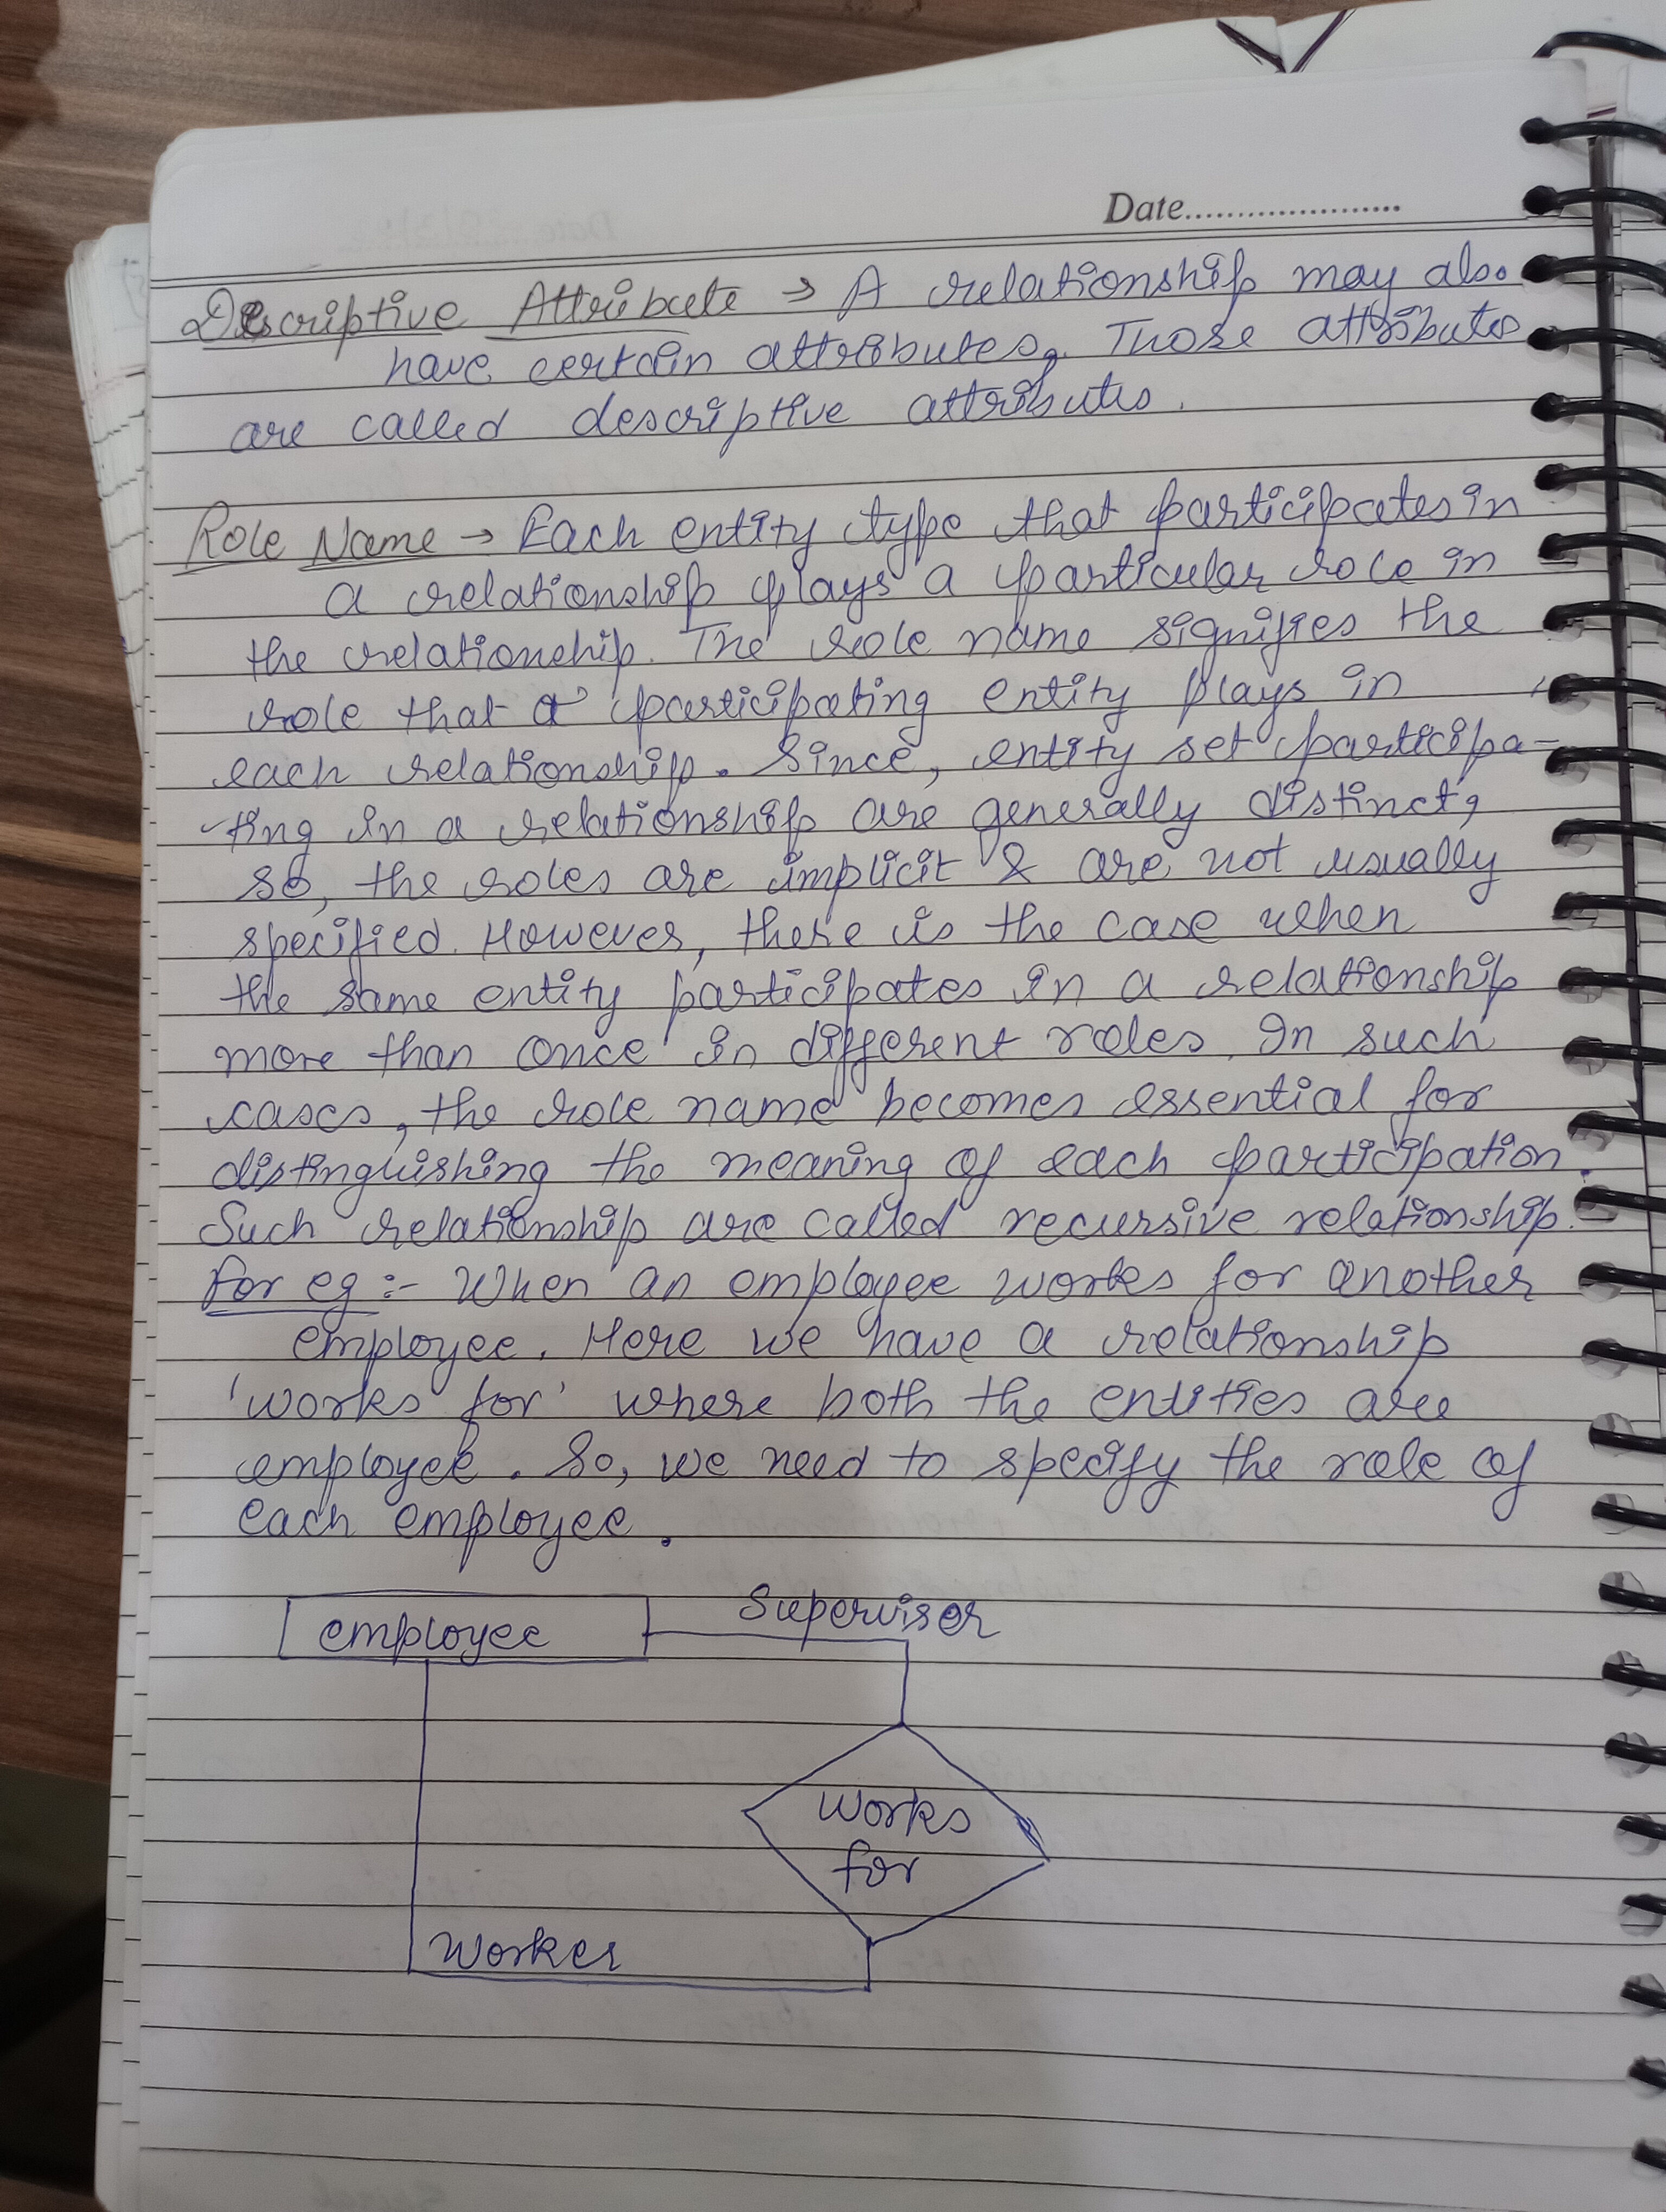 Date.....................
Descriptive Attribute → A relationship may also
have certain attributes. Those attributes
are called descriptive attributes.
Role Name → Each entity type that participates in
a relationship plays a particular role in
the relationship. The role name signifies the
role that a participating entity plays in
each relationship. Since, entity set participa-
ting in a relationship are generally distinct,
so, the roles are implicit & are not usually
specified. However, there is the case when
the same entity participates in a relationship
more than once in different roles. In such
cases, the role name becomes essential for
distinguishing the meaning of each participation.
Such relationship are called recursive relationship.
For eg :- When an employee works for another
employee. Here we have a relationship
'works for' where both the entities are
employee. So, we need to specify the role of
each employee.
employee
Supervisor
works
for
Worker